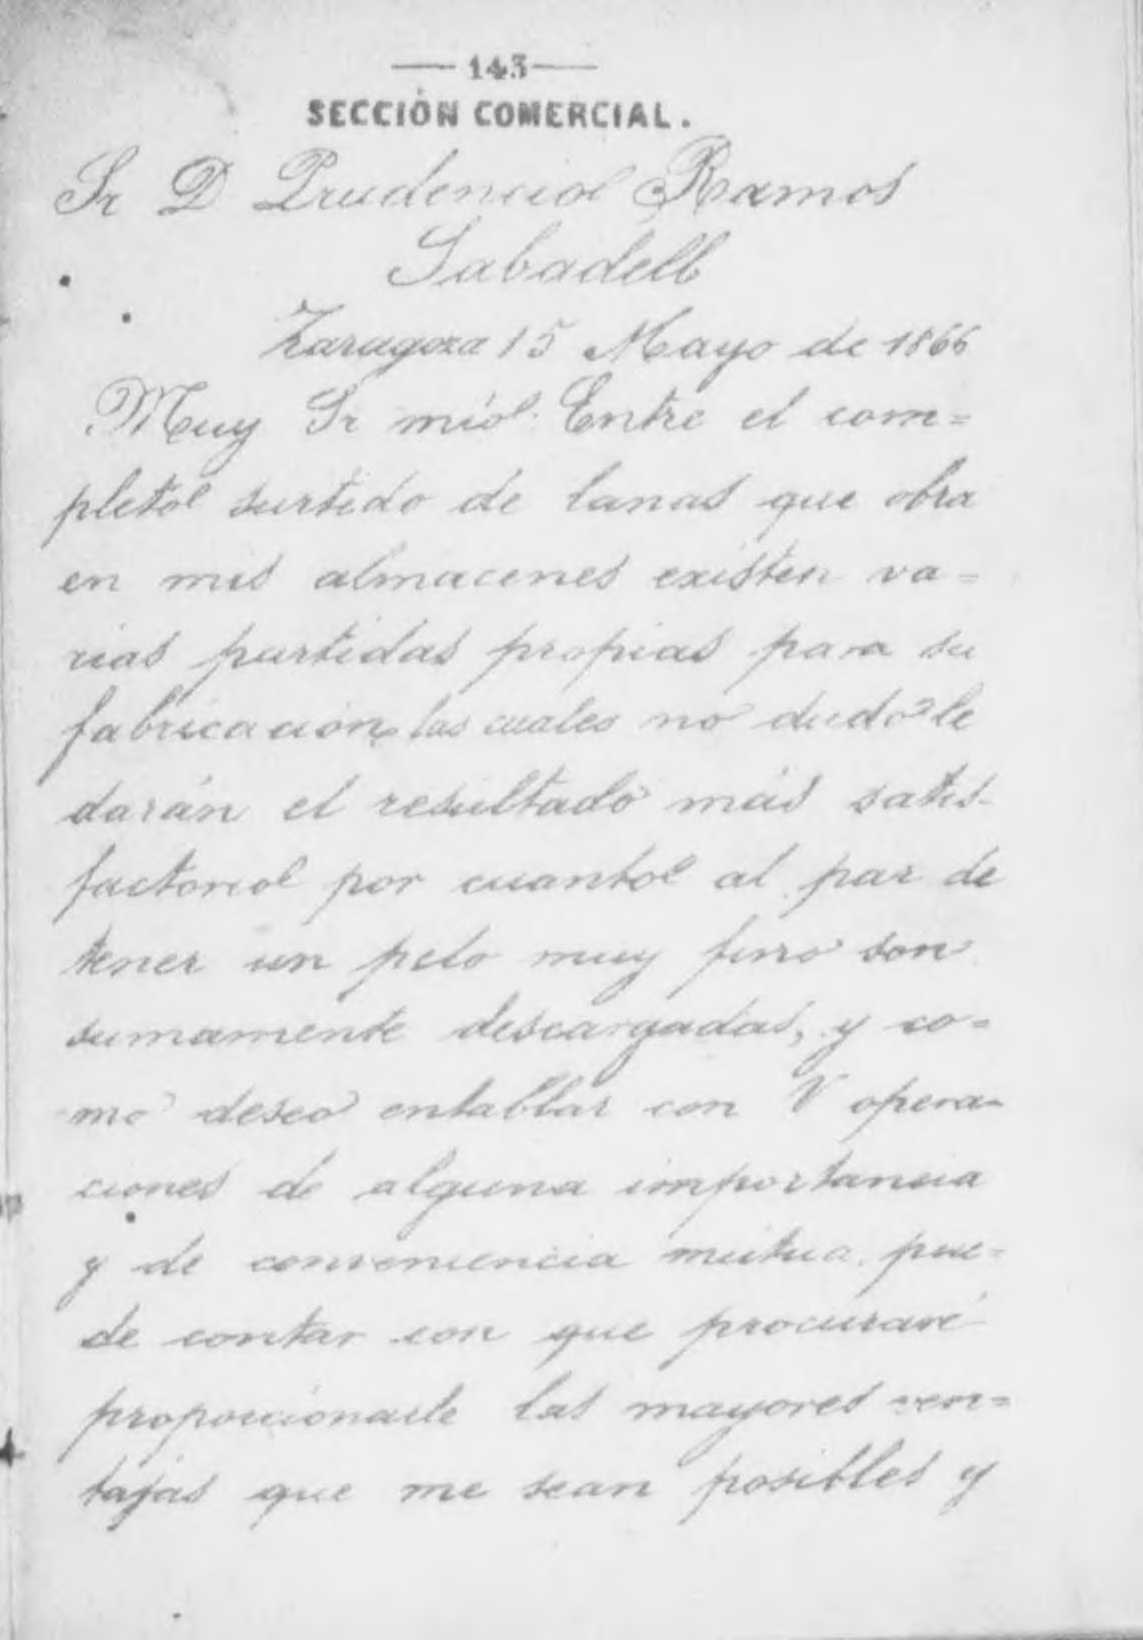 — 143 —
SECCIÓN COMERCIAL.
Sr D Prudencio Ramos
Sabadell
Zaragoza 15 Mayo de 1866
Muy Sr mío: Entre el com=
pleto surtido de lanas que obra
en mis almacenes existen va=
rias partidas propias para su
fabricación, las cuales no dudo le
darán el resultado más satis-
factorio por cuanto al par de
tener un pelo muy fino son
sumamente descargadas, y co=
mo deseo entablar con V opera=
ciones de alguna importancia
y de conveniencia mútua, pue=
de contar con que procuraré
proporcionarle las mayores ven=
tajas que me sean posibles y